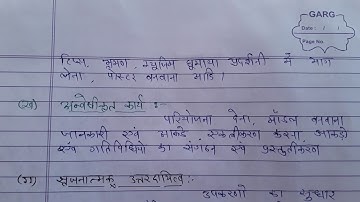 GARG
Date : / /
Page No.
ट्रिप्स, भ्रमण, म्यूजियम घूमाया प्रदर्शनी में भाग
लेना, पोस्टर बनवाना आदि।
(ख) अन्वेषीकृत कार्य :-
परियोजना देना, मॉडल बनवाना
जानकारी एवं आंकडे, स्पष्टीकरण करना, आंकड़ो
एवं गतिविधियो का संगठन एवं प्रस्तुतीकरण
(ग) सृजनात्मक उत्तरदायित्व :-
उपकरणों का सुधार